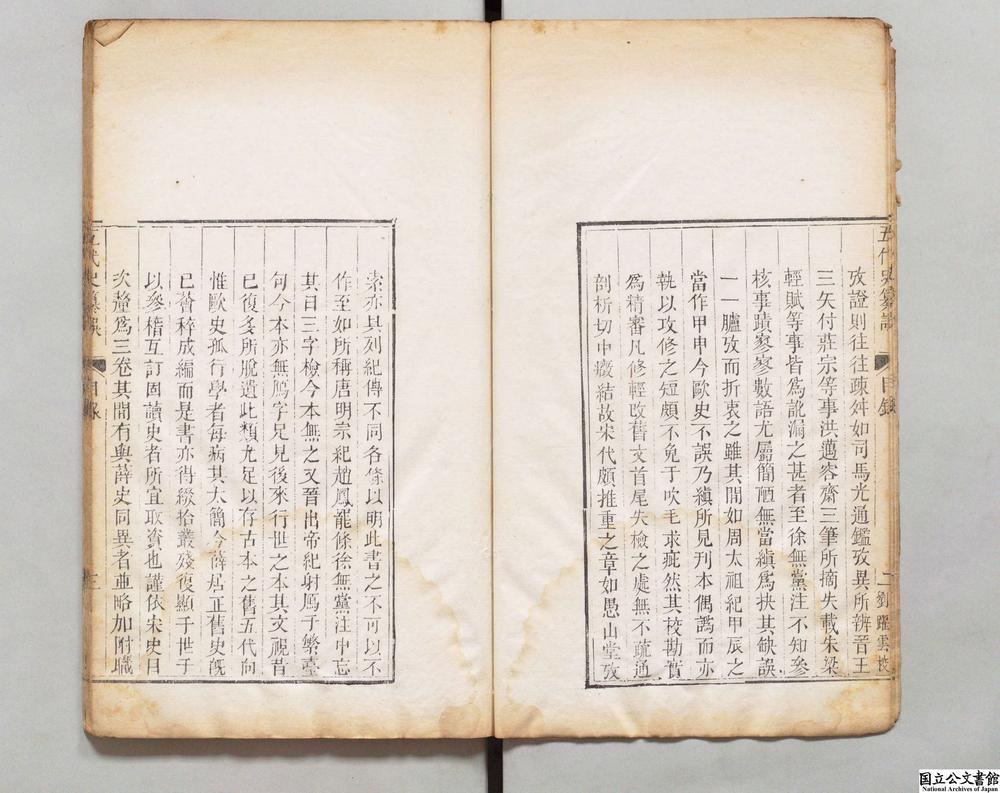 五代史纂誤
目錄
二
劉躍雲校
攷證則往往疎舛如司馬光通鑑攷異所辨晉王
三矢付莊宗等事洪邁容齋三筆所摘失載朱梁
輕賦等事皆爲訛漏之甚者至徐無黨注不知參
核事蹟寥寥數語尤屬簡陋無當縝爲抉其缺誤
一一臚攷而折衷之雖其間如周太祖紀甲辰之
當作甲申今歐史不誤乃縝所見刊本偶譌而亦
執以攻修之短頗不免于吹毛求疵然其校勘實
爲精審凡修輕改舊文首尾失檢之處無不疏通
剖析切中癥結故宋代頗推重之章如愚山堂攷
索亦具列紀傳不同各條以明此書之不可以不
作至如所稱唐明宗紀趙鳳罷條徐無黨注中忘
其日三字檢今本無之又晉出帝紀射鴈于繁臺
句今本亦無鴈字足見後來行世之本其文視昔
已復多所脫遺此類尤足以存古本之舊五代向
惟歐史孤行學者每病其太簡今薛居正舊史旣
已薈稡成編而是書亦得綴拾叢殘復顯于世于
以參稽互訂固讀史者所宜取資也謹依宋史目
次釐爲三卷其間有與薛史同異者亟略加附職
五代史纂誤
目錄
三
国立公文書館
National Archives of Japan